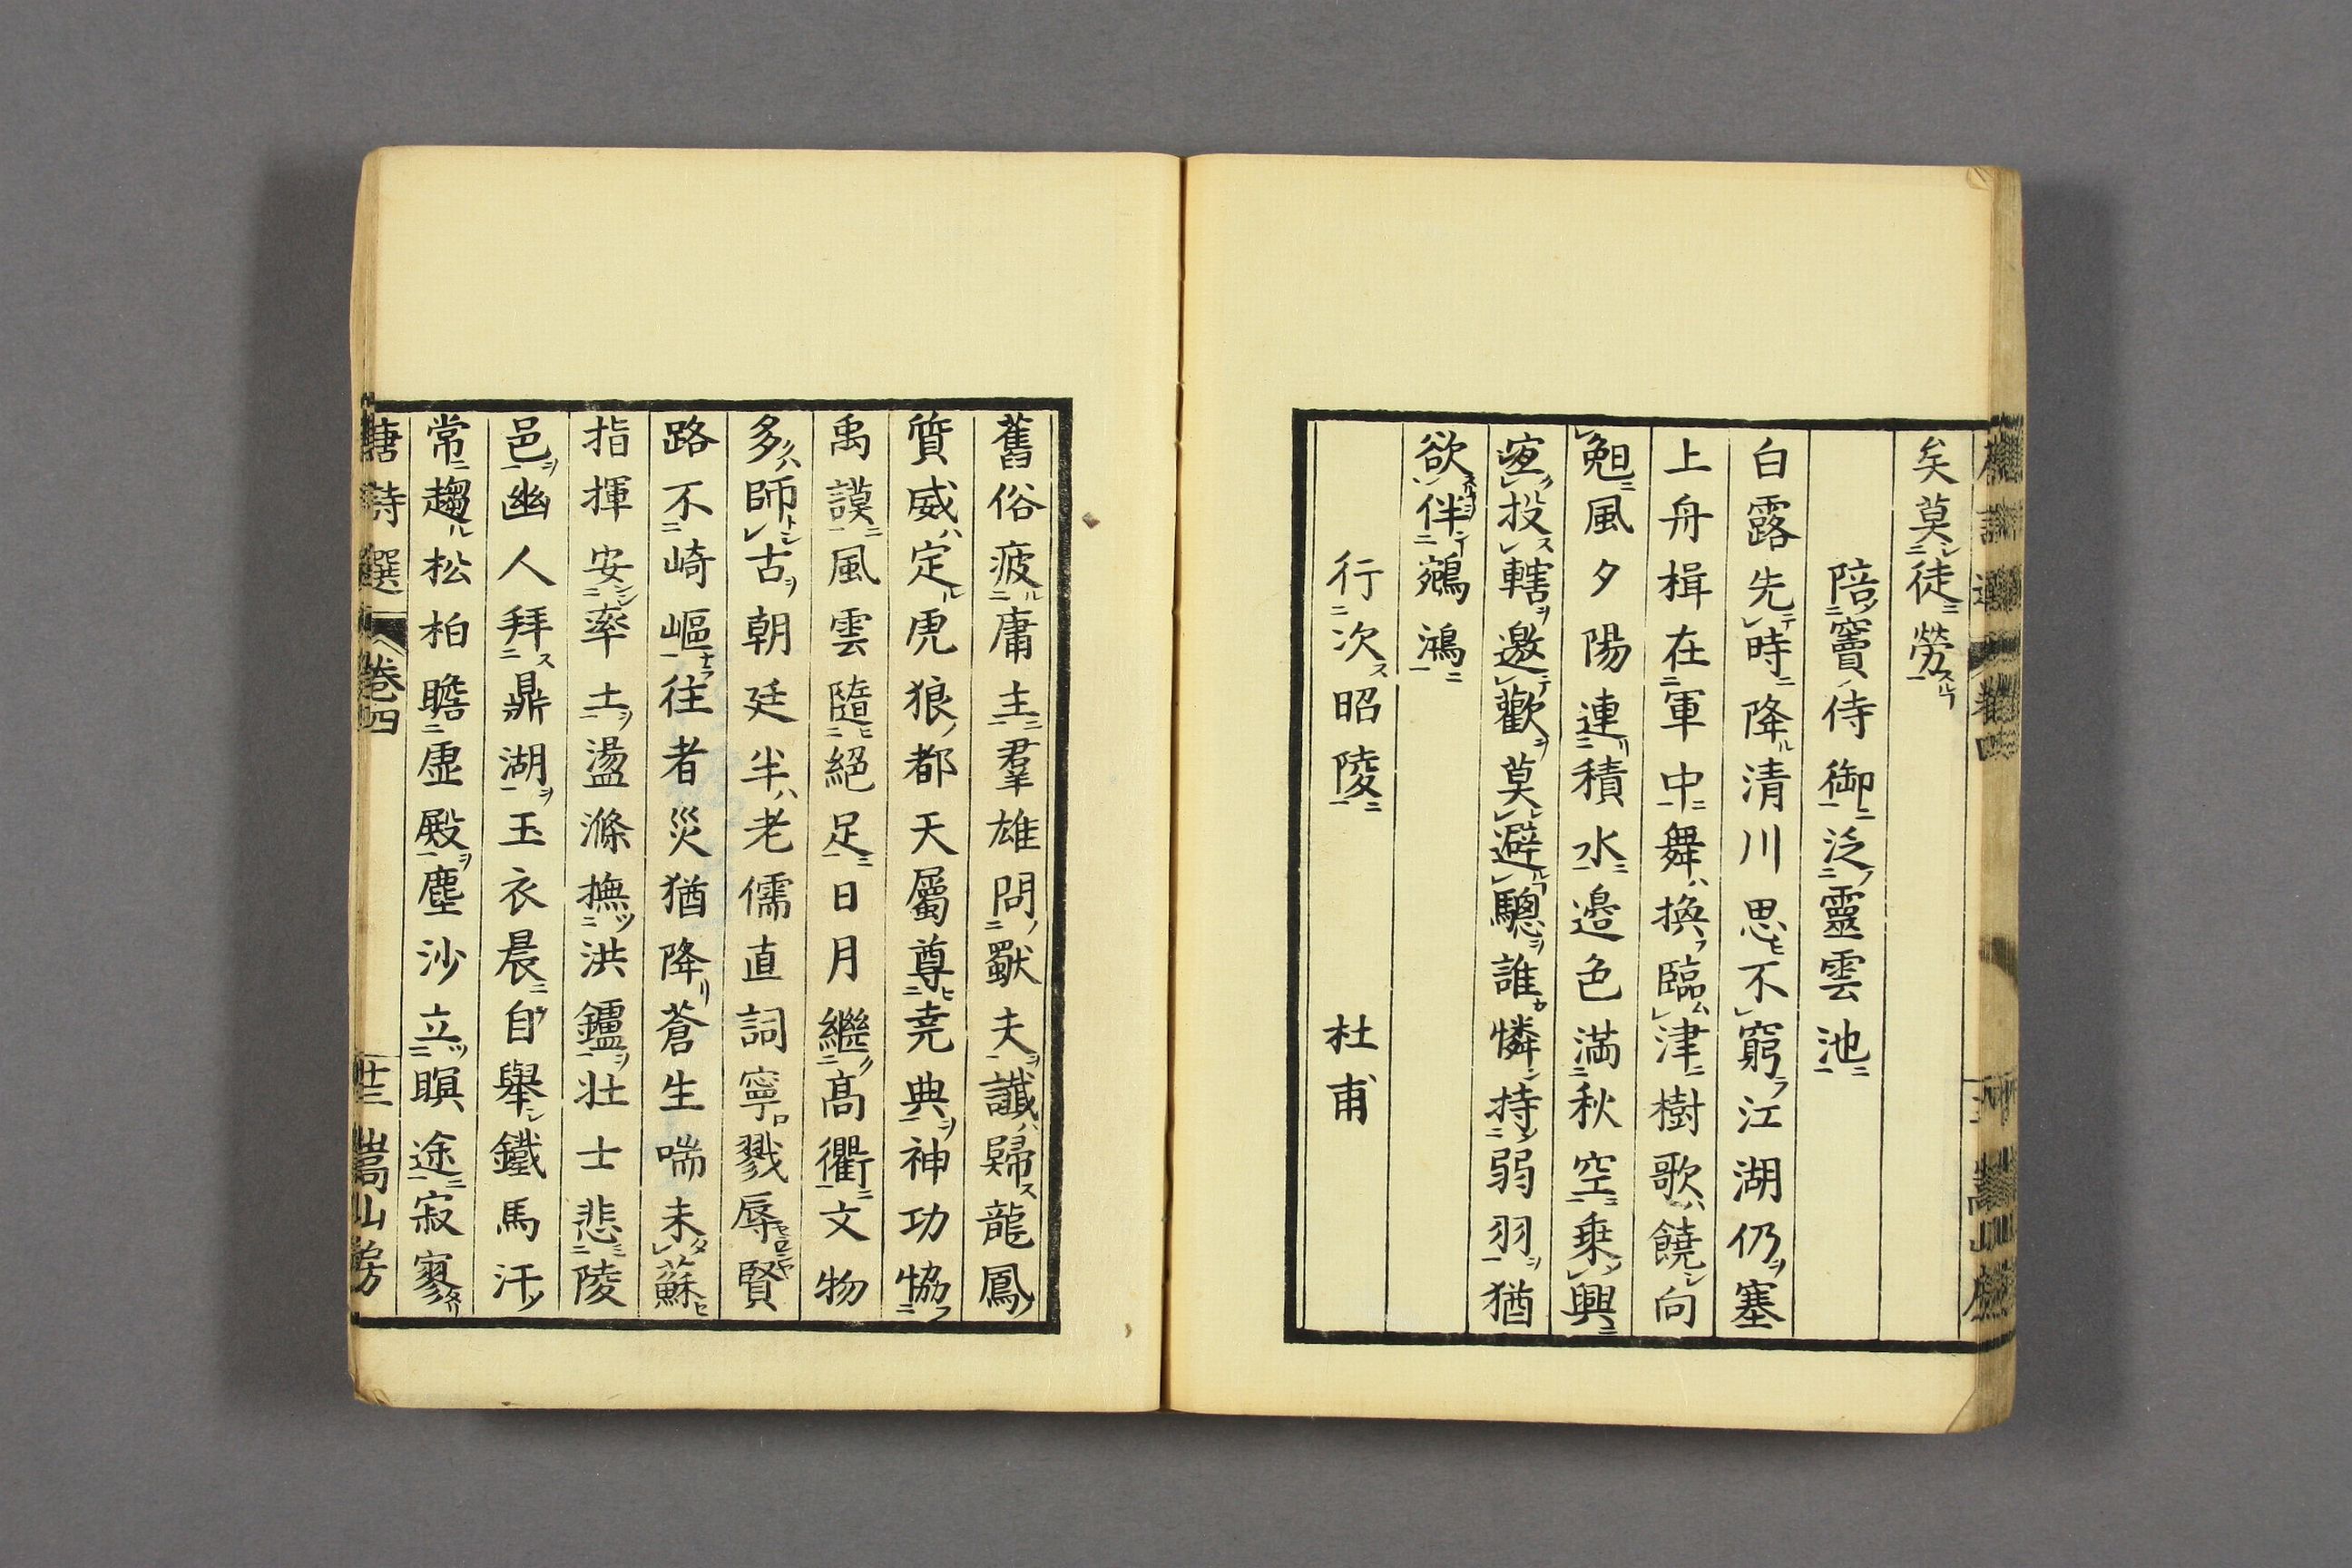 矣莫徒勞
陪竇侍御泛靈雲池
白露先時降清川思不窮江湖仍塞
上舟楫在軍中舞換臨津樹歌饒向
晚風夕陽連積水邉色滿秋空乗興
宜投轄邀歡莫避驄誰憐持弱羽猶
欲伴鵷鴻
行次昭陵 杜甫
舊俗疲庸主羣雄問獨夫讖歸龍鳳
質威定虎狼都天屬尊堯典神功恊
禹謨風雲隨絕足日月繼高衢文物
多師古朝廷半老儒直詞寧戮辱賢
路不崎嶇往者災猶降蒼生喘未蘇
指揮安率土盪滌撫洪鑪壯士悲陵
邑幽人拜鼎湖玉衣晨自舉鐵馬汗
常趨松柏瞻虛殿塵沙立暝途寂寥
唐詩選 卷四 廿三 嵩山房